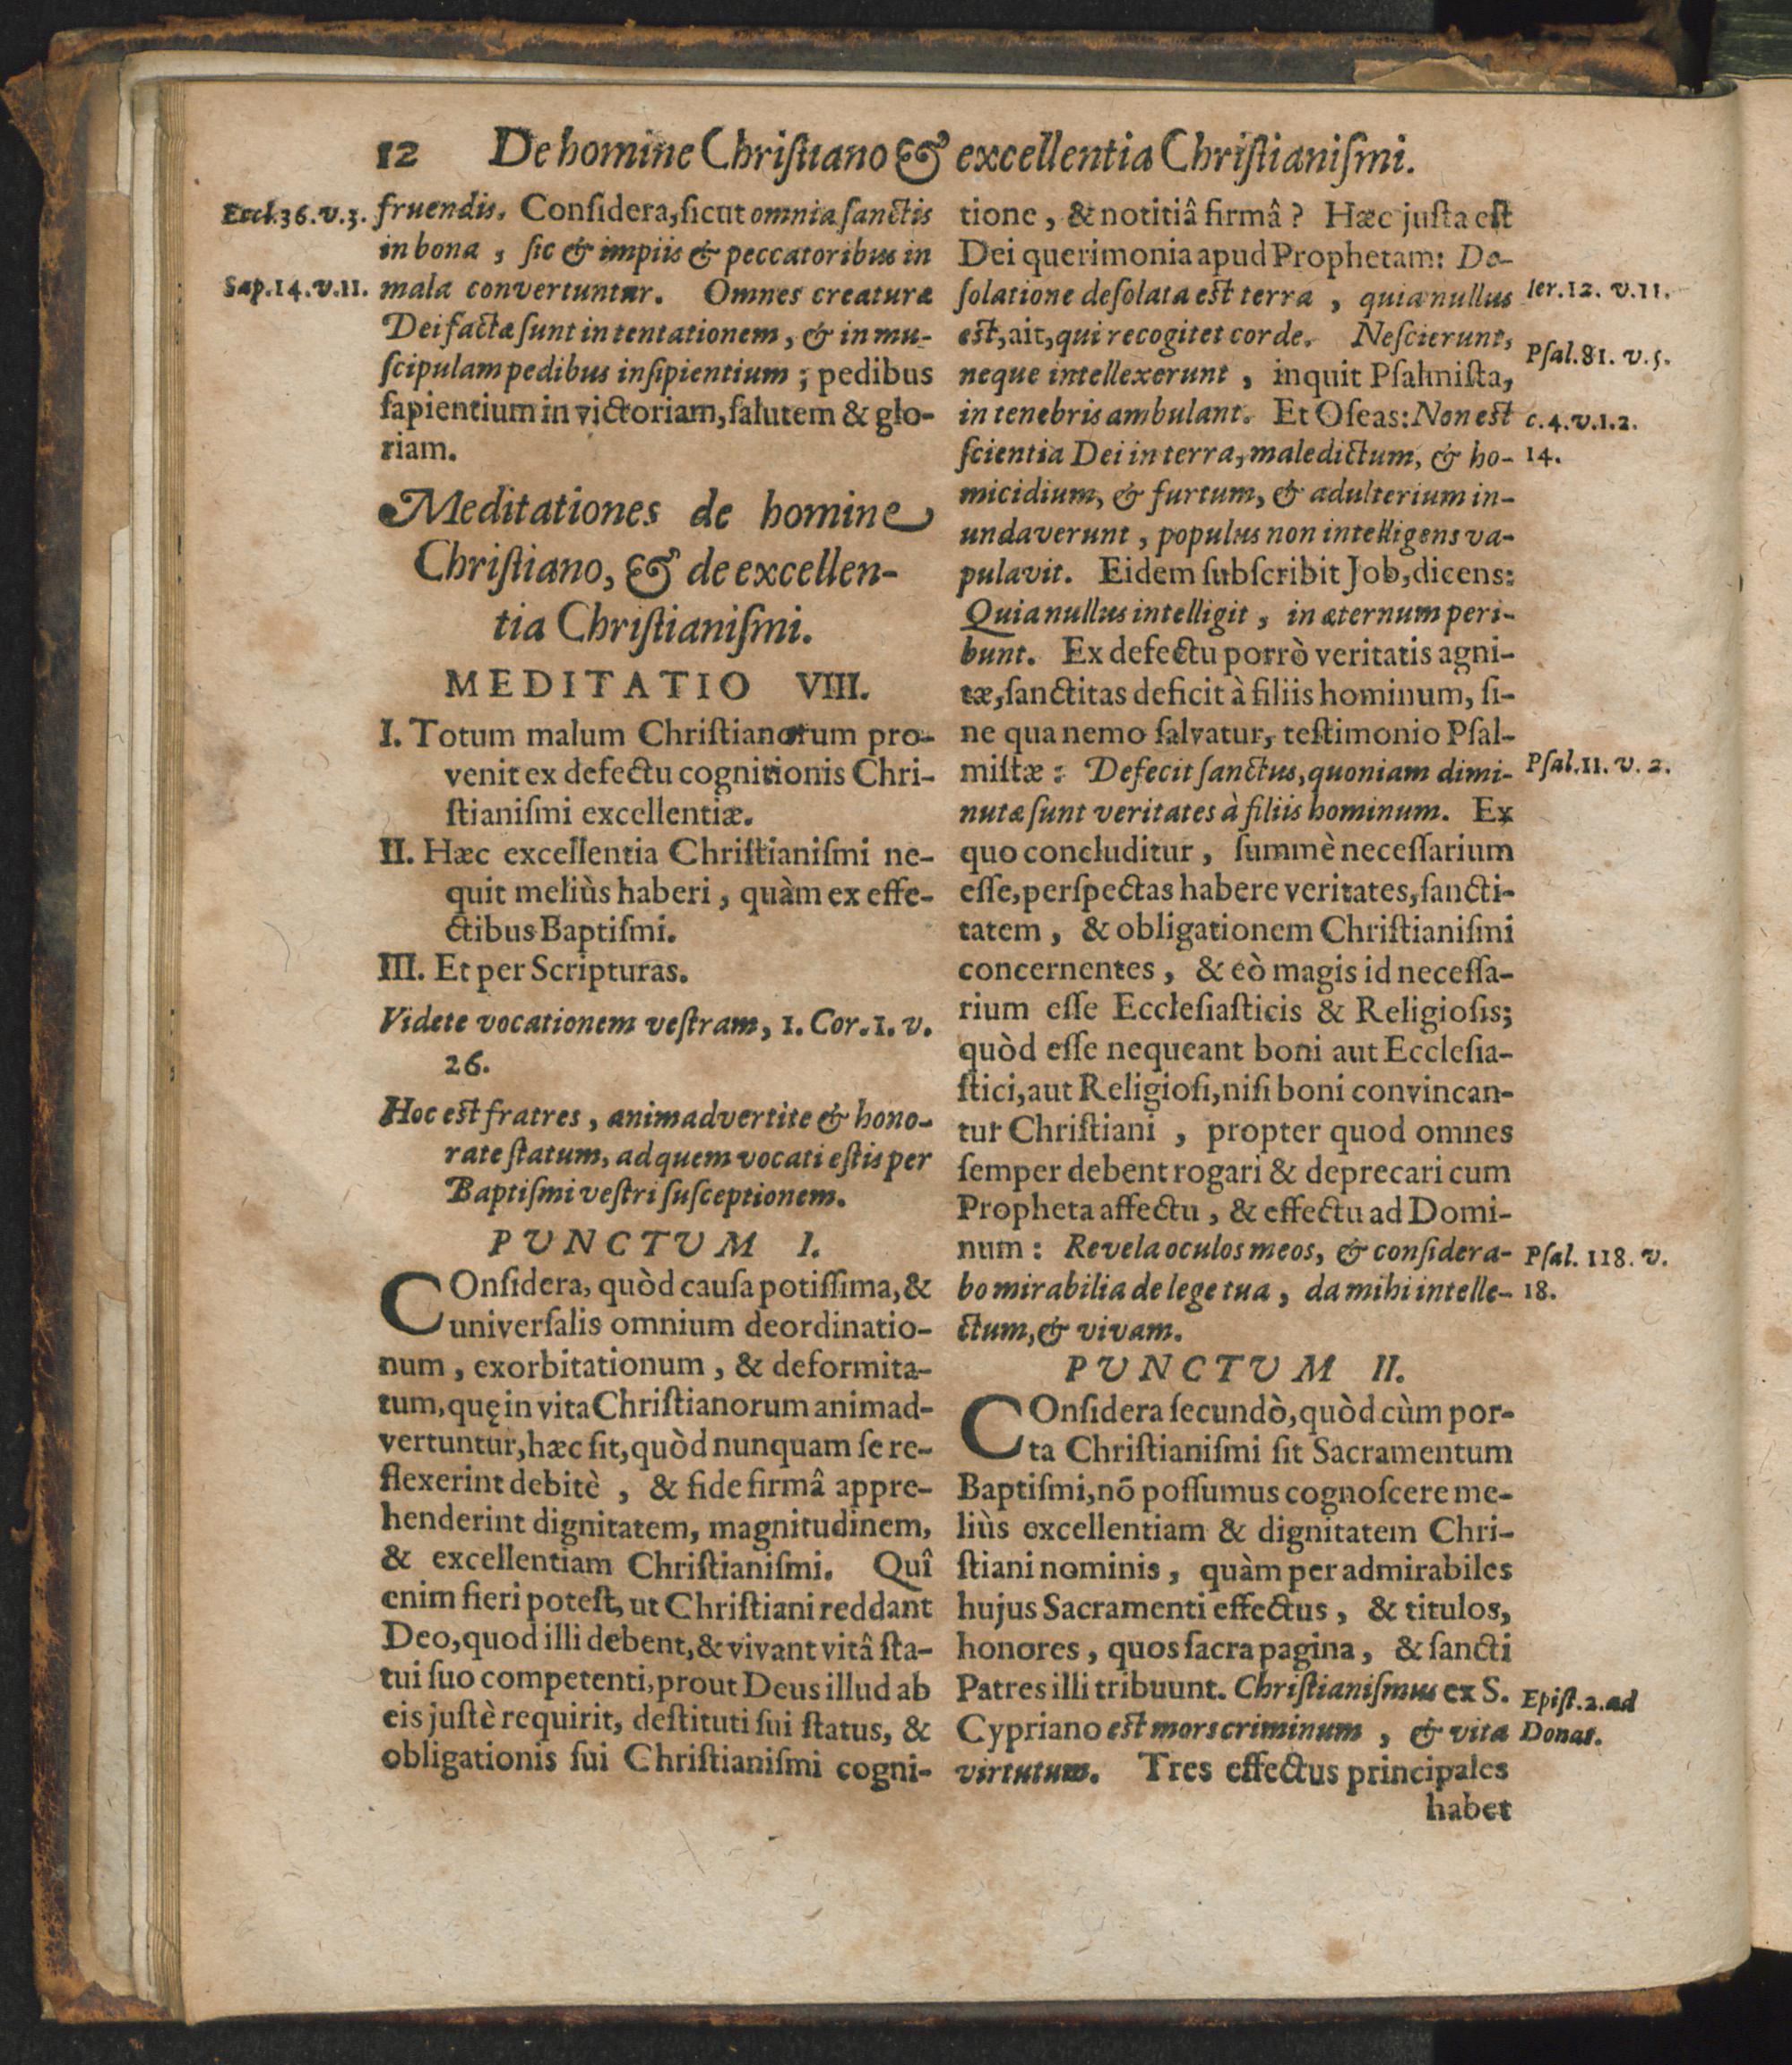 12 De homine Christiano & excellentia Christianiſmi.
Eccl.36.v.3.
fruendis. Conſidera, ſicut omnia ſanctis
in bona, ſic & impiis & peccatoribus in
Sap.14.v.11.
mala convertuntur. Omnes creaturæ
Dei factæ ſunt in tentationem, & in mu-
ſcipulam pedibus inſipientium; pedibus
ſapientium in victoriam, ſalutem & glo-
riam.
Meditationes de homine
Chriſtiano, & de excellen-
tia Chriſtianiſmi.
MEDITATIO VIII.
I. Totum malum Chriſtianorum pro-
venit ex defectu cognitionis Chri-
ſtianiſmi excellentiæ.
II. Hæc excellentia Chriſtianiſmi ne-
quit meliùs haberi, quàm ex effe-
ctibus Baptiſmi.
III. Et per Scripturas.
Videte vocationem veſtram, 1. Cor. 1. v.
26.
Hoc est fratres, animadvertite & hono-
rate ſtatum, ad quem vocati eſtis per
Baptiſmi veſtri ſuſceptionem.
PUNCTUM I.
COnſidera, quòd cauſa potiſſima, &
univerſalis omnium deordinatio-
num, exorbitationum, & deformita-
tum, quę in vita Chriſtianorum animad-
vertuntur, hæc ſit, quòd nunquam ſe re-
flexerint debitè, & fide firmâ appre-
henderint dignitatem, magnitudinem,
& excellentiam Chriſtianiſmi. Quî
enim fieri poteſt, ut Chriſtiani reddant
Deo, quod illi debent, & vivant vitâ ſta-
tui ſuo competenti, prout Deus illud ab
eis juſtè requirit, deſtituti ſui ſtatus, &
obligationis ſui Chriſtianiſmi cogni-
tione, & notitiâ firmâ? Hæc juſta eſt
Dei querimonia apud Prophetam: De-
ſolatione deſolata est terra, quia nullus
Ier.12. v.11.
est, ait, qui recogitet corde. Neſcierunt,
Pſal.81. v.5.
neque intellexerunt, inquit Pſalmiſta,
in tenebris ambulant. Et Oſeas: Non est
c.4.v.1.2.
ſcientia Dei in terra, maledictum, & ho-
14.
micidium, & furtum, & adulterium in-
undaverunt, populus non intelligens va-
pulavit. Eidem ſubſcribit Job, dicens:
Quia nullus intelligit, in æternum peri-
bunt. Ex defectu porrò veritatis agni-
tæ, ſanctitas deficit à filiis hominum, ſi-
ne qua nemo ſalvatur, teſtimonio Pſal-
miſtæ: Defecit ſanctus, quoniam dimi-
Pſal.11. v. 2.
nutæ ſunt veritates à filiis hominum. Ex
quo concluditur, ſummè neceſſarium
eſſe, perſpectas habere veritates, ſancti-
tatem, & obligationem Chriſtianiſmi
concernentes, & eò magis id neceſſa-
rium eſſe Eccleſiaſticis & Religioſis;
quòd eſſe nequeant boni aut Eccleſia-
ſtici, aut Religioſi, niſi boni convincan-
tur Chriſtiani, propter quod omnes
ſemper debent rogari & deprecari cum
Propheta affectu, & effectu ad Domi-
num: Revela oculos meos, & conſidera-
Pſal. 118. v.
bo mirabilia de lege tua, da mihi intelle-
18.
ctum, & vivam.
PUNCTUM II.
COnſidera ſecundò, quòd cùm por-
ta Chriſtianiſmi ſit Sacramentum
Baptiſmi, nō poſſumus cognoſcere me-
liùs excellentiam & dignitatem Chri-
ſtiani nominis, quàm per admirabiles
hujus Sacramenti effectus, & titulos,
honores, quos ſacra pagina, & ſancti
Patres illi tribuunt. Chriſtianiſmus ex S.
Epiſt.2.ad
Cypriano est mors criminum, & vita
Donat.
virtutum. Tres effectus principales
habet